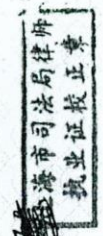 海市司法局律师
执业证校正章